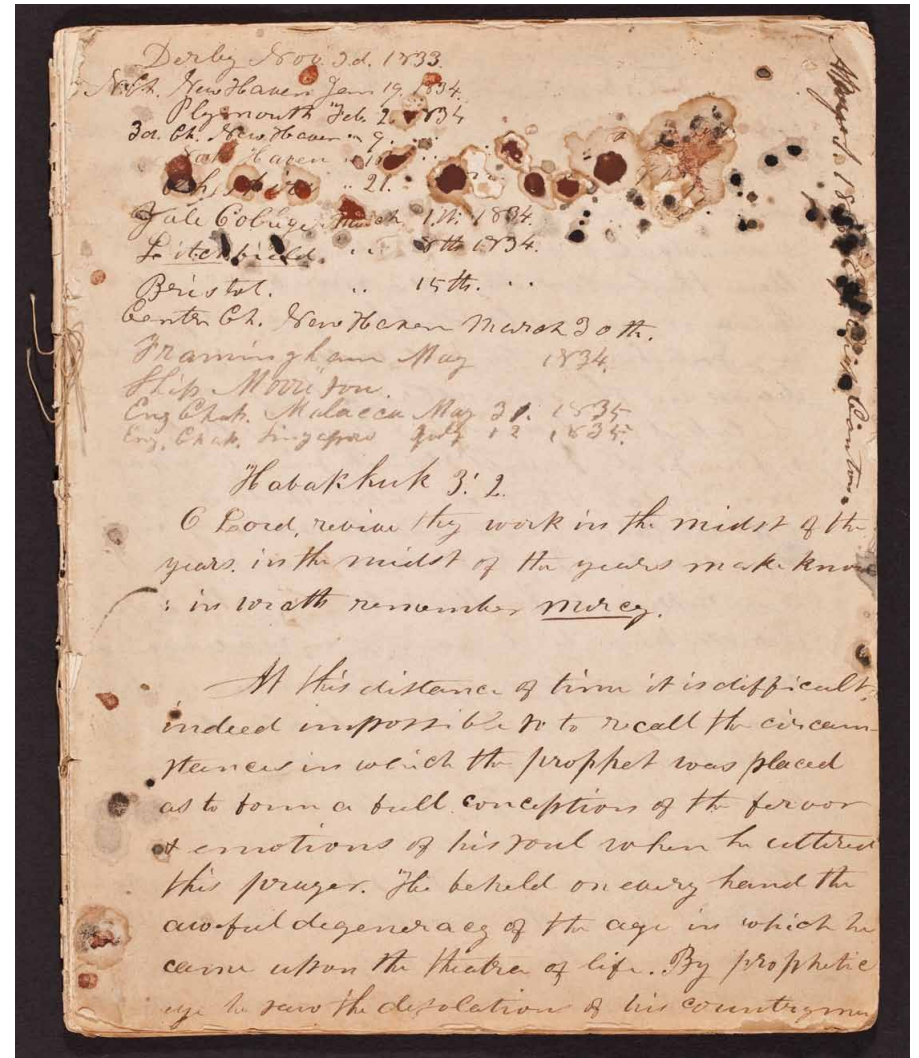 Derby Nov. 3d. 1833.
N. Ch. New Haven Jan 19. 1834.
Plymouth Feb. 2. 1834
3d. Ch. New Haven .. 9. ..
Haven ..
.. 21. ..
Yale College. March 1st. 1834.
Litchfield .. 8th 1834.
Bristol. .. 15th. ..
Center Ch. New Haven March 30th.
Framingham May 1834.
Ship Morrison.
Eng Chap. Malacca May 31. 1835
Eng. Chap. Singapore July 12 1835.
Canton.
Habakkuk 3: 2.
O Lord, revive thy work in the midst of the
years. in the midst of the years make know
: in wrath remember mercy.
At this distance of time it is difficult,
indeed impossible so to recall the circum-
stances in which the prophet was placed
as to form a full conceptions of the fervor
& emotions of his soul when he uttered
this prayer. He beheld on every hand the
awful degeneracy of the age in which he
came upon the theatre of life. By prophetic
eye he saw the desolation of his countrymen